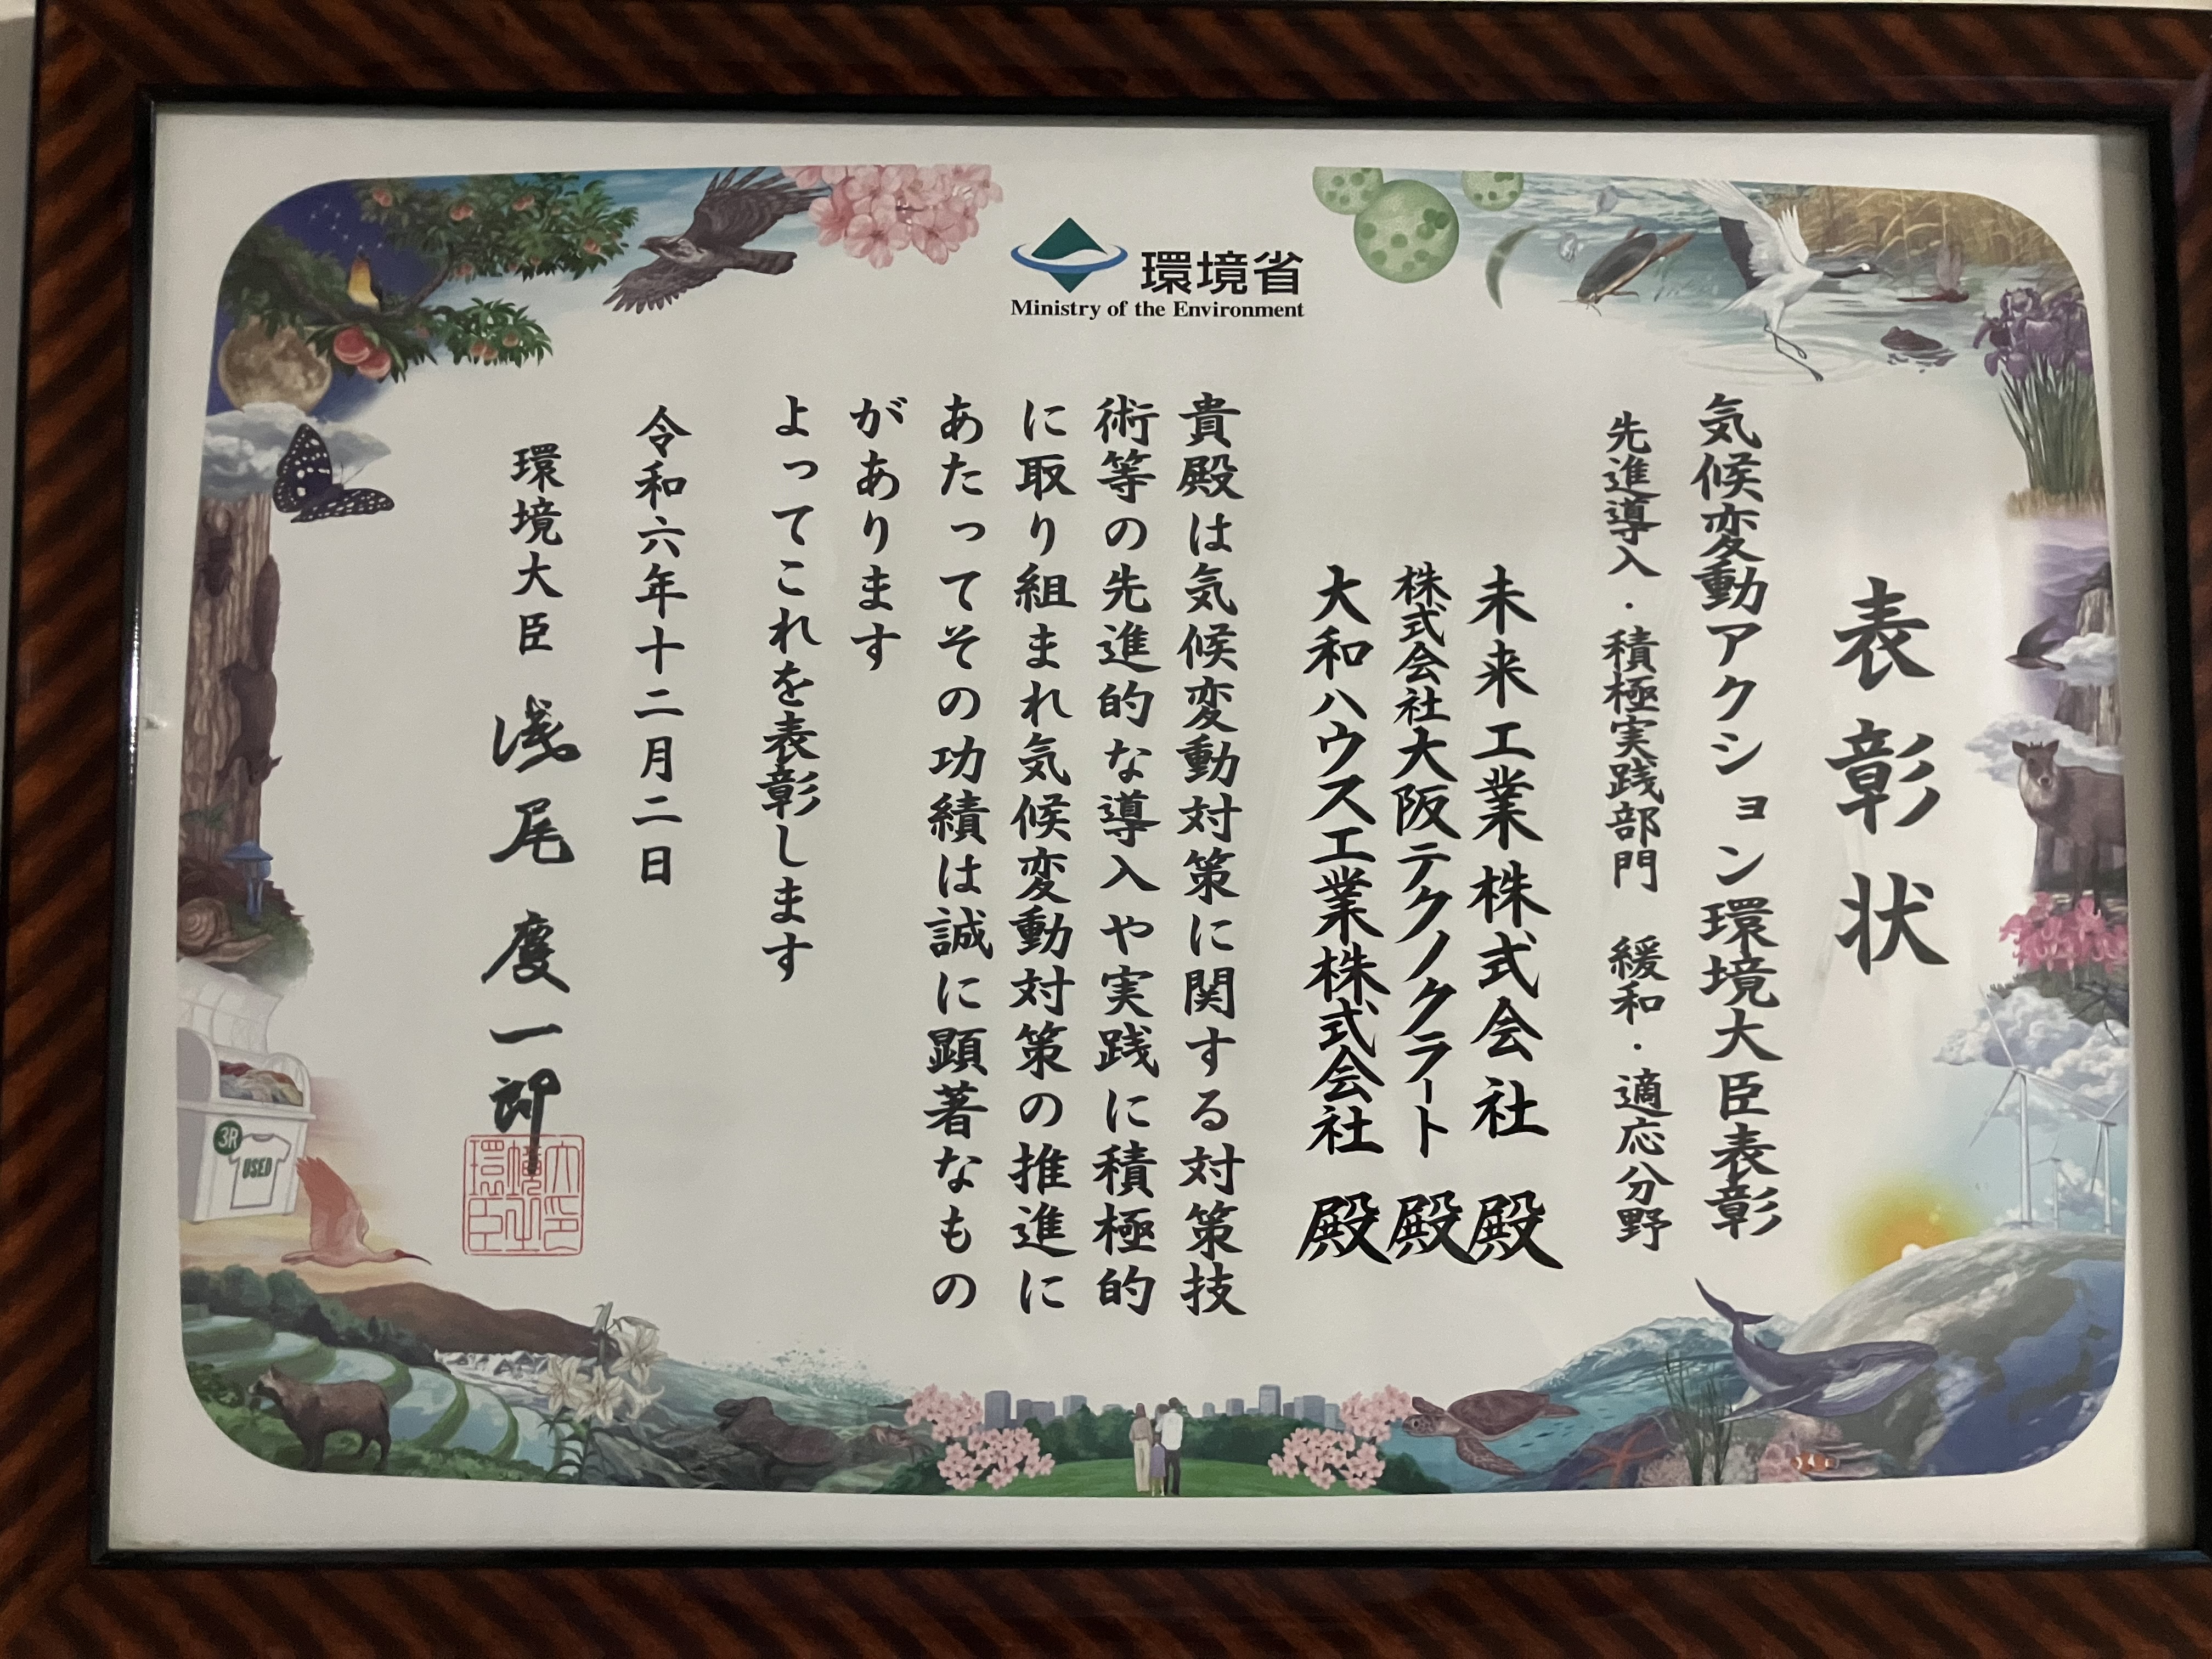 環境省
Ministry of the Environment
表彰状
気候変動アクション環境大臣表彰
先進導入・積極実践部門　緩和・適応分野
未来工業株式会社　殿
株式会社大阪テクノクラート　殿
大和ハウス工業株式会社　殿
貴殿は気候変動対策に関する対策技
術等の先進的な導入や実践に積極的
に取り組まれ気候変動対策の推進に
あたってその功績は誠に顕著なもの
があります
よってこれを表彰します
令和六年十二月二日
環境大臣　浅尾慶一郎
環境大臣之印
3R
USED